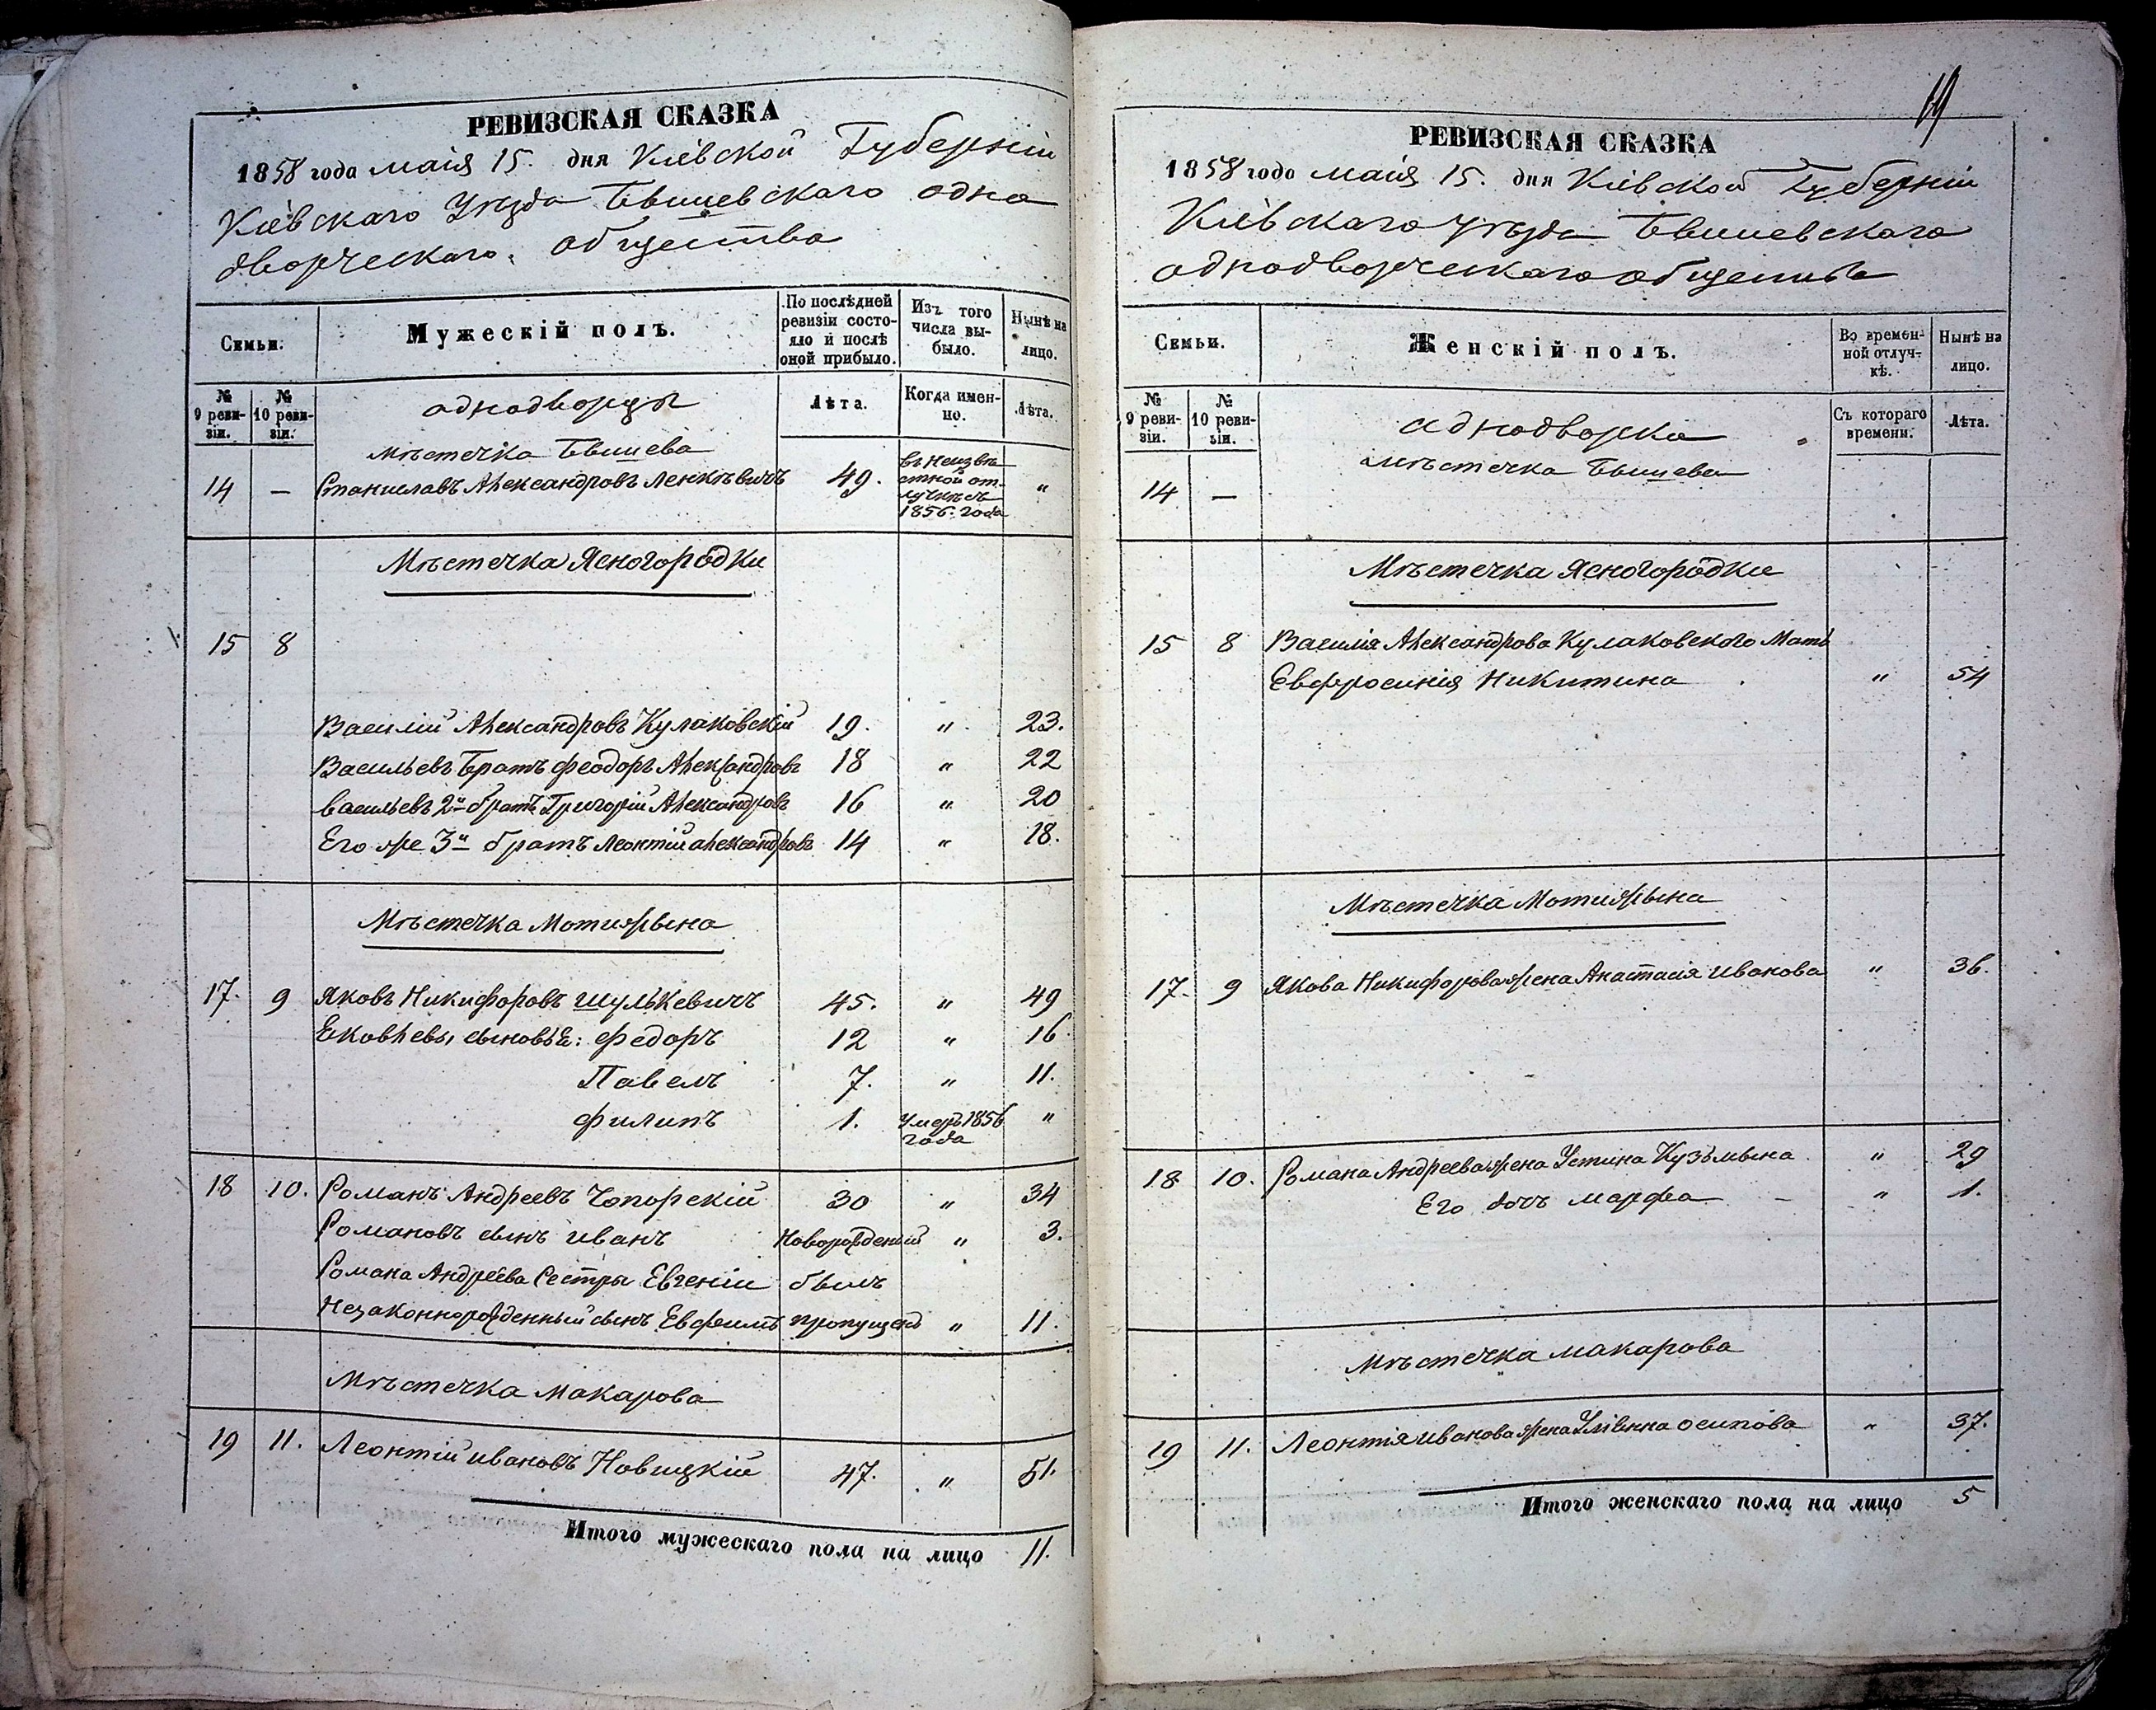 РЕВИЗСКАЯ СКАЗКА
1858 года маія 15. дня Кіевской Губерніи
Кіевскаго Уѣзда Бышевскаго одно
дворческаго. общества
Семьи.
Мужескій полъ.
По послѣдней ревизіи состояло и послѣ оной прибыло.
Изъ того числа выбыло.
Нынѣ на лицо.
№ 9 ревизіи.
№ 10 ревизіи.
однодворцы
Лѣта.
Когда именно.
Лѣта.
мѣстечка Бышева
14 — Станиславъ Александровъ Ленкѣвичъ 49. въ неизвѣстной отлучкѣ съ 1856. года "
Мѣстечка Ясногородки
15 8
Василій Александровъ Кулаковскій 19. " 23.
Васильевъ Братъ Феодоръ Александровъ 18 " 22
Васильевъ 2й братъ Григорій Александровъ 16 " 20
Его же 3й братъ Леонтій Александровъ 14 " 18.
Мѣстечка Мотижына
17. 9 Яковъ Никифоровъ Шулькевичъ 45. " 49
Яковлевы сыновья: Федоръ 12 " 16
Павелъ 7. " 11.
Филипъ 1. Умеръ 1856 года "
18 10. Романъ Андреевъ Чопорскій 30 " 34
Романовъ сынъ Иванъ Новорожденый " 3.
Романа Андреева Сестры Евгеніи былъ
Незаконнорожденный сынъ Евфимъ пропущенъ " 11.
Мѣстечка Макарова
19 11. Леонтій Ивановъ Новицкій 47. " 51.
Итого мужескаго пола на лицо 11.
19
РЕВИЗСКАЯ СКАЗКА
1858 года маія 15. дня Кіевской Губерніи
Кіевскаго Уѣзда Бышевскаго
однодворческаго общества
Семьи.
Женскій полъ.
Во временной отлучкѣ.
Нынѣ на лицо.
№ 9 ревизіи.
№ 10 ревизіи.
однодворки
Съ котораго времени.
Лѣта.
мѣстечка Бышева
14 —
Мѣстечка Ясногородки
15 8 Василія Александрова Кулаковского Мать
Евфросинія Никитина " 54
Мѣстечка Мотижына
17. 9 Якова Никифорова жена Анастасія Иванова " 36.
18 10. Романа Андреева жена Устина Кузьмына " 29
Его дочь Марфа — " 1.
Мѣстечка Макарова
19 11. Леонтія Иванова жена Осипова " 37.
Итого женскаго пола на лицо 5